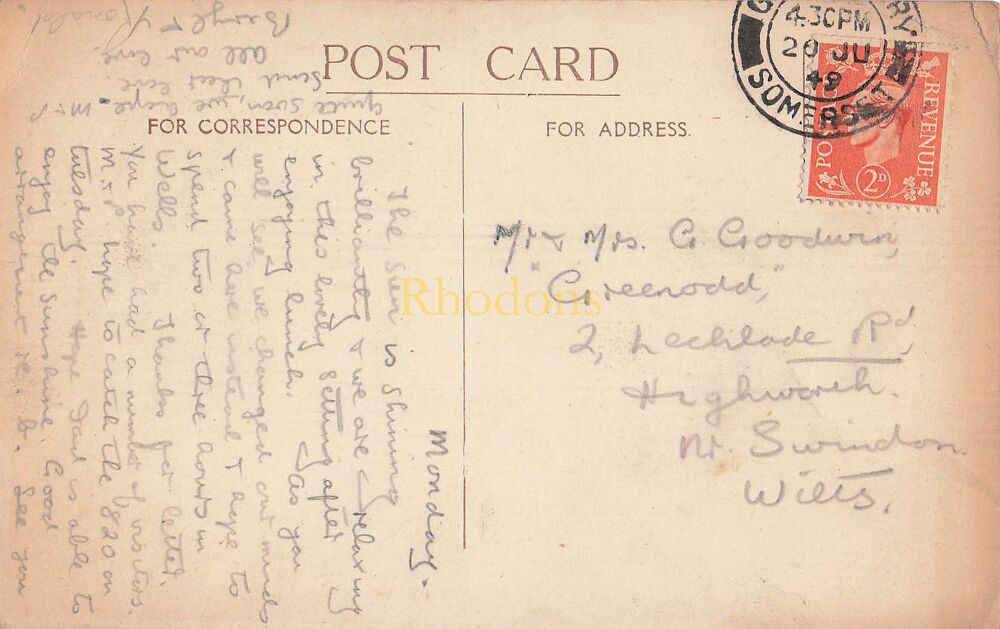 POST CARD
FOR CORRESPONDENCE
FOR ADDRESS.
4.30PM
20 JU
49
SOMERSET
REVENUE
2D
Mr & Mrs. G. Goodwin,
"Greenodd,"
2, Lechlade Rd,
Highworth.
Nr. Swindon
Wilts.
Monday.
The sun is shining
brilliantly & we are relaxing
in this lovely setting after
enjoying lunch. As you
will see, we changed our minds
& came here instead & hope to
spend two or three hours in
Wells. Thanks for letter.
You have had a number of visitors.
M & P. hope to catch the 8.20 on
Tuesday. Hope Dad is able to
enjoy the sunshine. Good
arrangement re. B. See you
quite soon, we hope. M & P
send their love.
All our love.
Beryl & Ronald.
Rhodons